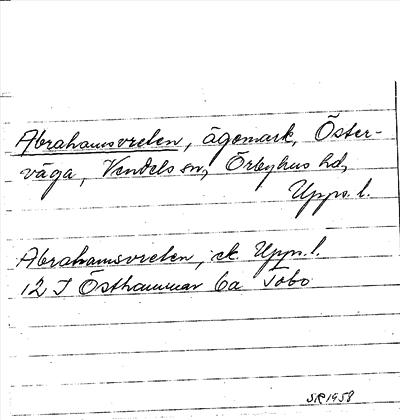 Abrahamsvreten, ägomark, Öster-
våga, Vendels sn, Örbyhus hd,
Upps. l.
Abrahamsvreten, ek. Upps. l.
12 I Östhammar 6a Tobo
SR 1958